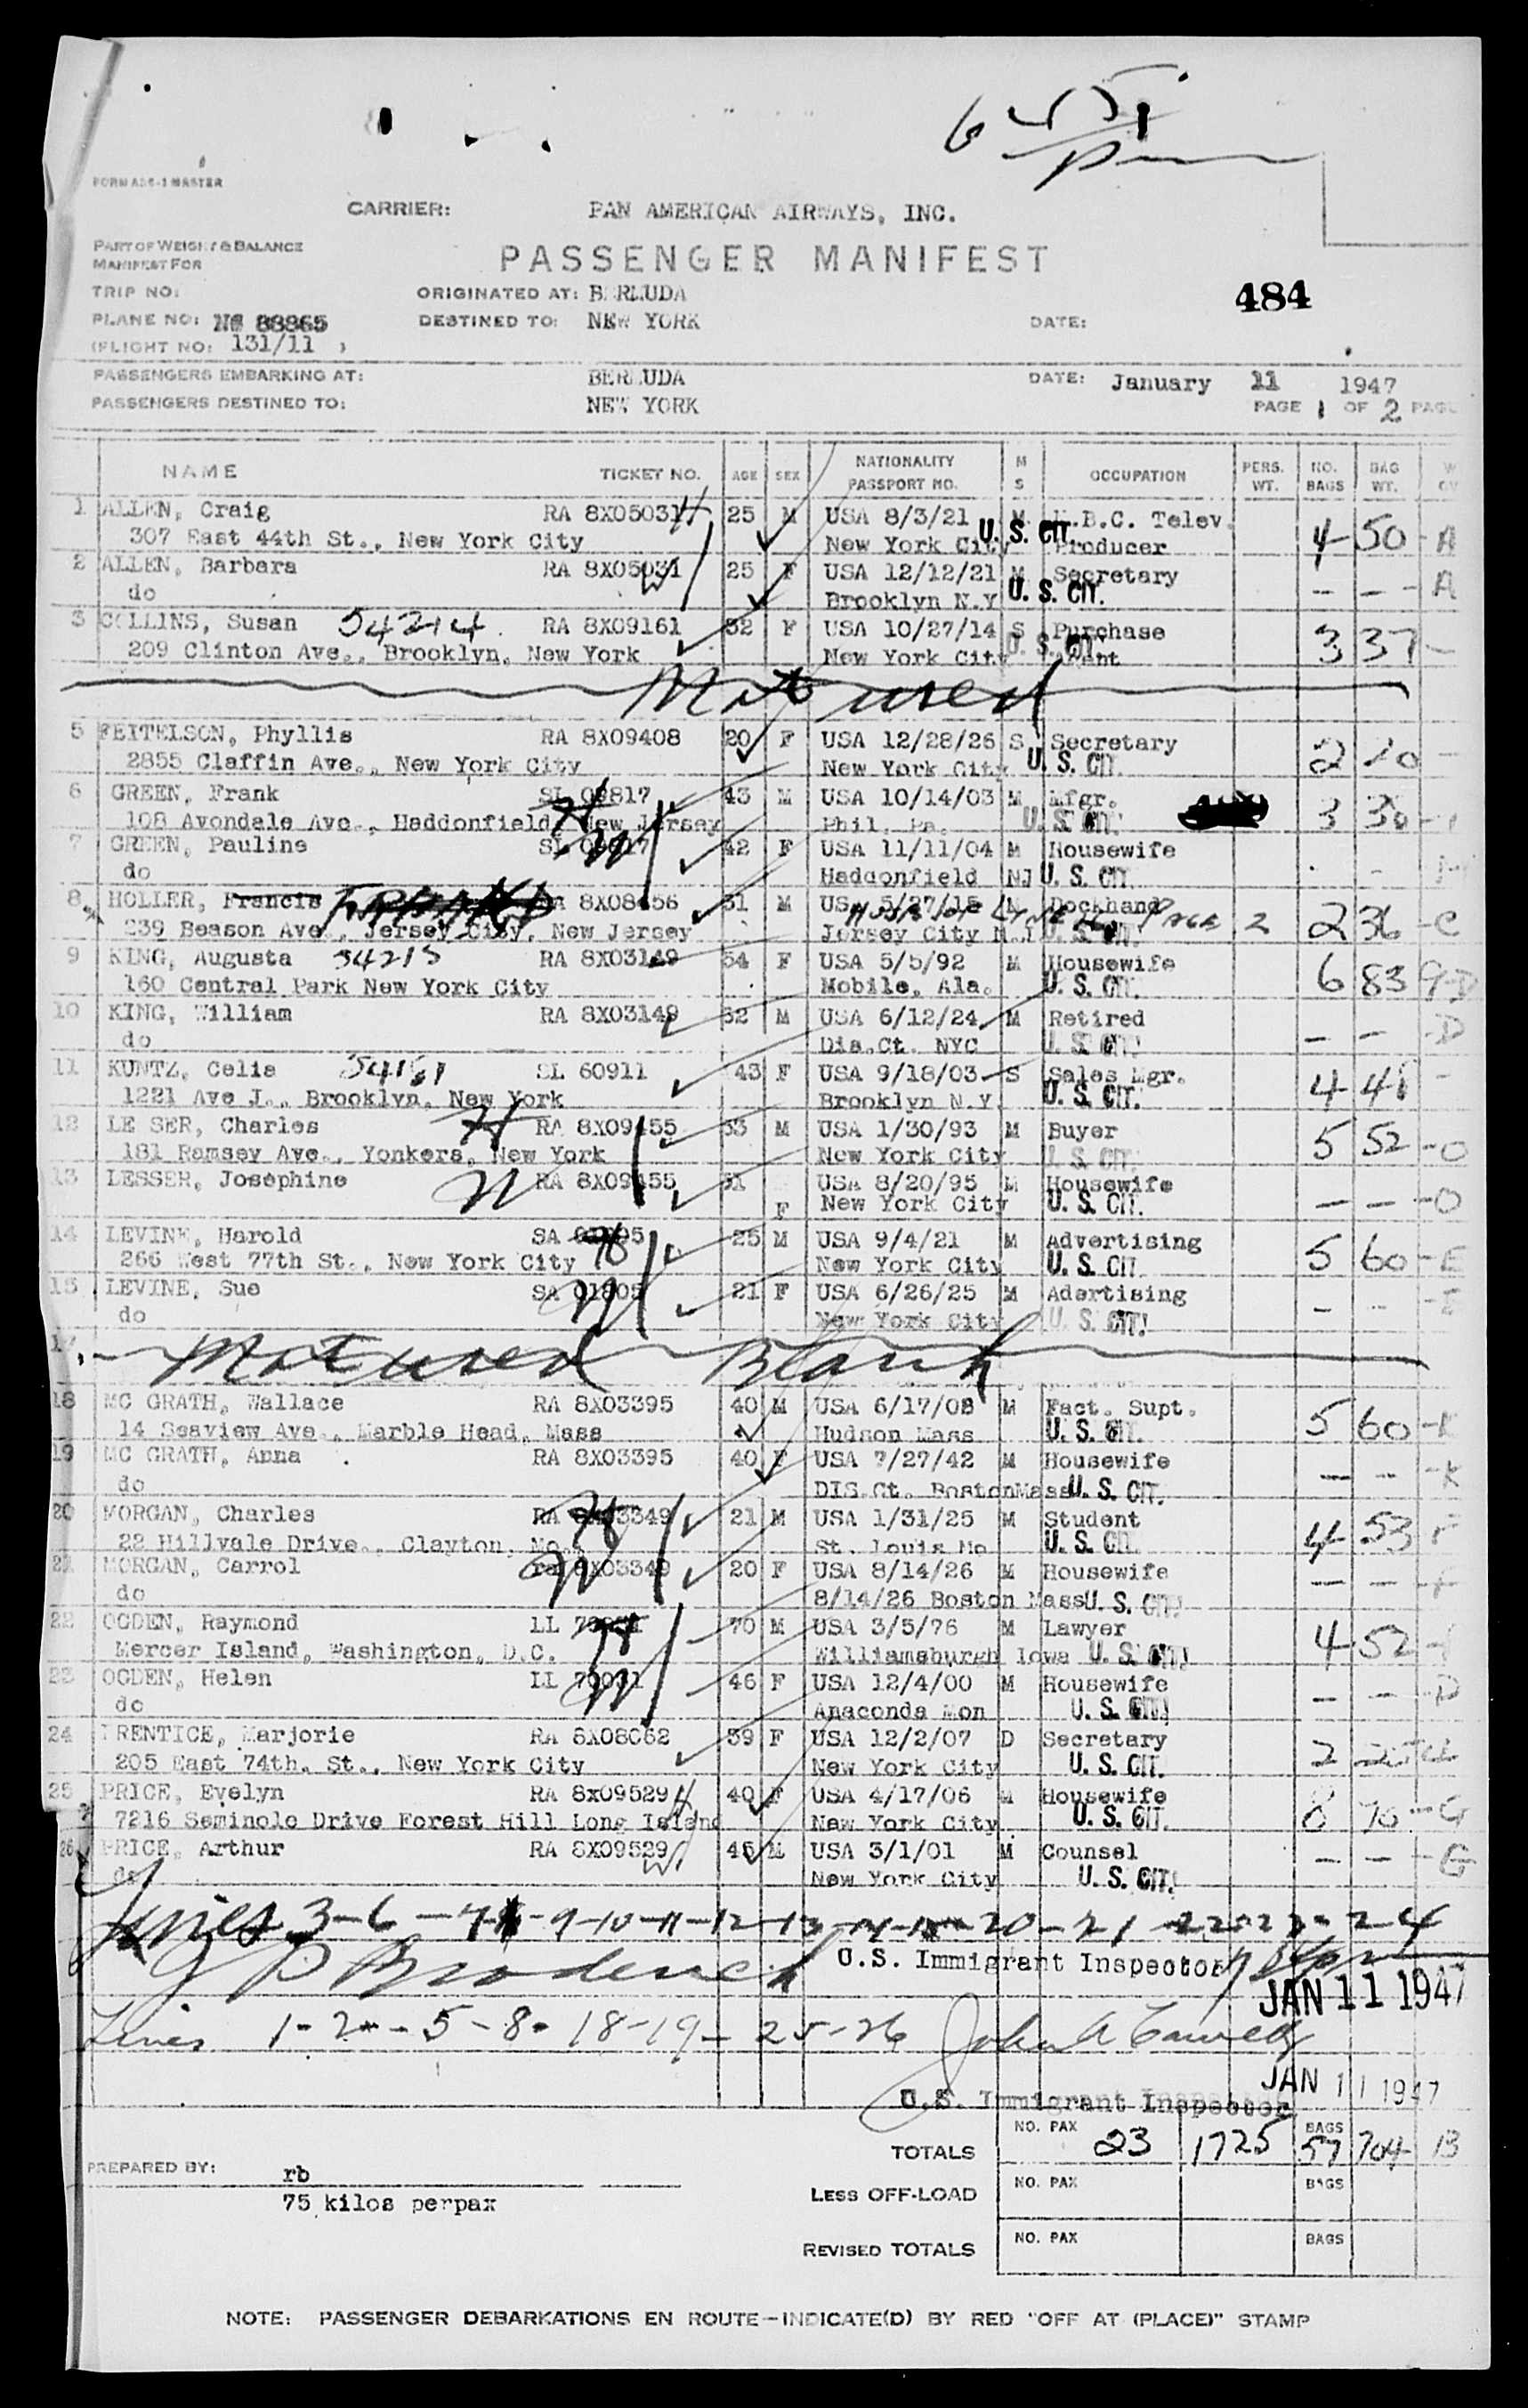 FORM ADS-1 MASTER
CARRIER: PAN AMERICAN AIRWAYS, INC.
PART OF WEIGHT & BALANCE
MANIFEST FOR
PASSENGER MANIFEST
TRIP NO:
ORIGINATED AT: BERMUDA
484
PLANE NO: NC 88865
DESTINED TO: NEW YORK
DATE:
(FLIGHT NO: 131/11 )
PASSENGERS EMBARKING AT: BERMUDA
DATE: January 11 1947
PASSENGERS DESTINED TO: NEW YORK
PAGE 1 OF 2 PAGE
NAME TICKET NO. AGE SEX NATIONALITY PASSPORT NO. M S OCCUPATION PERS. WT. NO. BAGS BAG WT.
1 ALLEN, Craig RA 8X05031 H 25 M USA 8/3/21 M N.B.C. Telev. 4 50 - A
307 East 44th St., New York City New York City U. S. CIT. Producer
2 ALLEN, Barbara RA 8X05031 W 25 F USA 12/12/21 M Secretary - - - A
do Brooklyn N.Y U. S. CIT.
3 COLLINS, Susan 54214 RA 8X09161 32 F USA 10/27/14 S Purchase 3 37 -
209 Clinton Ave., Brooklyn, New York New York City U. S. CIT.
Not used
5 FEITELSON, Phyllis RA 8X09408 20 F USA 12/28/26 S Secretary 2 20 -
2855 Claffin Ave., New York City New York City U. S. CIT.
6 GREEN, Frank SL 09817 H 43 M USA 10/14/03 M Mfgr. 3 30
108 Avondale Ave., Haddonfield, New Jersey Phil, Pa. U. S. CIT.
7 GREEN, Pauline SL W 42 F USA 11/11/04 M Housewife
do Haddonfield NJ U. S. CIT.
8 HOLLER, Francis RA 8X08456 31 M USA 5/27/15 M Dockhand 2 36 - C
239 Beason Ave., Jersey City, New Jersey Jersey City N.J U. S. CIT. Page 2
9 KING, Augusta 54215 RA 8X03149 54 F USA 5/5/92 M Housewife 6 83 - D
160 Central Park New York City Mobile, Ala. U. S. CIT.
10 KING, William RA 8X03149 52 M USA 6/12/24 M Retired - - - D
do Dis.Ct. NYC U. S. CIT.
11 KUNTZ, Celia 54161 SL 60911 43 F USA 9/18/03 S Sales Mgr. 4 41 -
1221 Ave J., Brooklyn, New York Brooklyn N.Y. U. S. CIT.
12 LE SER, Charles H RA 8X09455 53 M USA 1/30/93 M Buyer 5 52 - O
181 Ramsey Ave., Yonkers, New York New York City U. S. CIT.
13 LESSER, Josephine W RA 8X09455 51 F USA 8/20/95 M Housewife - - - O
New York City U. S. CIT.
14 LEVINE, Harold SA H 25 M USA 9/4/21 M Advertising 5 60 - E
266 West 77th St., New York City New York City U. S. CIT.
15 LEVINE, Sue SA 01805 W 21 F USA 6/26/25 M Adertising - - - E
do New York City U. S. CIT.
17 Not used Blank
18 MC GRATH, Wallace RA 8X03395 40 M USA 6/17/08 M Fact. Supt. 5 60 - K
14 Seaview Ave., Marble Head, Mass Hudson Mass U. S. CIT.
19 MC GRATH, Anna RA 8X03395 40 F USA 7/27/42 M Housewife - - - K
do DIS.Ct. BostonMass U. S. CIT.
20 MORGAN, Charles RA 8X03349 H 21 M USA 1/31/25 M Student 4 53 F
22 Hillvale Drive., Clayton, Mo. St. Louis Mo U. S. CIT.
21 MORGAN, Carrol ra 8X03349 W 20 F USA 8/14/26 M Housewife - - - F
do 8/14/26 Boston Mass U. S. CIT.
22 OGDEN, Raymond LL H 70 M USA 3/5/76 M Lawyer 4 52
Mercer Island, Washington, D.C. Williamsburgh Iowa U. S. CIT.
23 OGDEN, Helen LL 70031 W 46 F USA 12/4/00 M Housewife - - - D
do Anaconda Mon U. S. CIT.
24 PRENTICE, Marjorie RA 8X08062 39 F USA 12/2/07 D Secretary 2
205 East 74th. St., New York City New York City U. S. CIT.
25 PRICE, Evelyn RA 8x09529 H 40 F USA 4/17/06 M Housewife 8 70 - G
7216 Seminole Drive Forest Hill Long Island New York City U. S. CIT.
26 PRICE, Arthur RA 8X09529 W 45 M USA 3/1/01 M Counsel - - - G
do New York City U. S. CIT.
Lines 3-6-7-9-10-11-12-13-14-15-20-21-22-23-24
J P Broderick U.S. Immigrant Inspector
JAN 11 1947
Lines 1-2-5-8-18-19-25-26 John A
JAN 11 1947
U.S. Immigrant Inspector
TOTALS NO. PAX 23 1725 BAGS 57 704 13
PREPARED BY: rb
LESS OFF-LOAD NO. PAX BAGS
75 kilos perpax
REVISED TOTALS NO. PAX BAGS
NOTE: PASSENGER DEBARKATIONS EN ROUTE—INDICATE(D) BY RED "OFF AT (PLACE)" STAMP